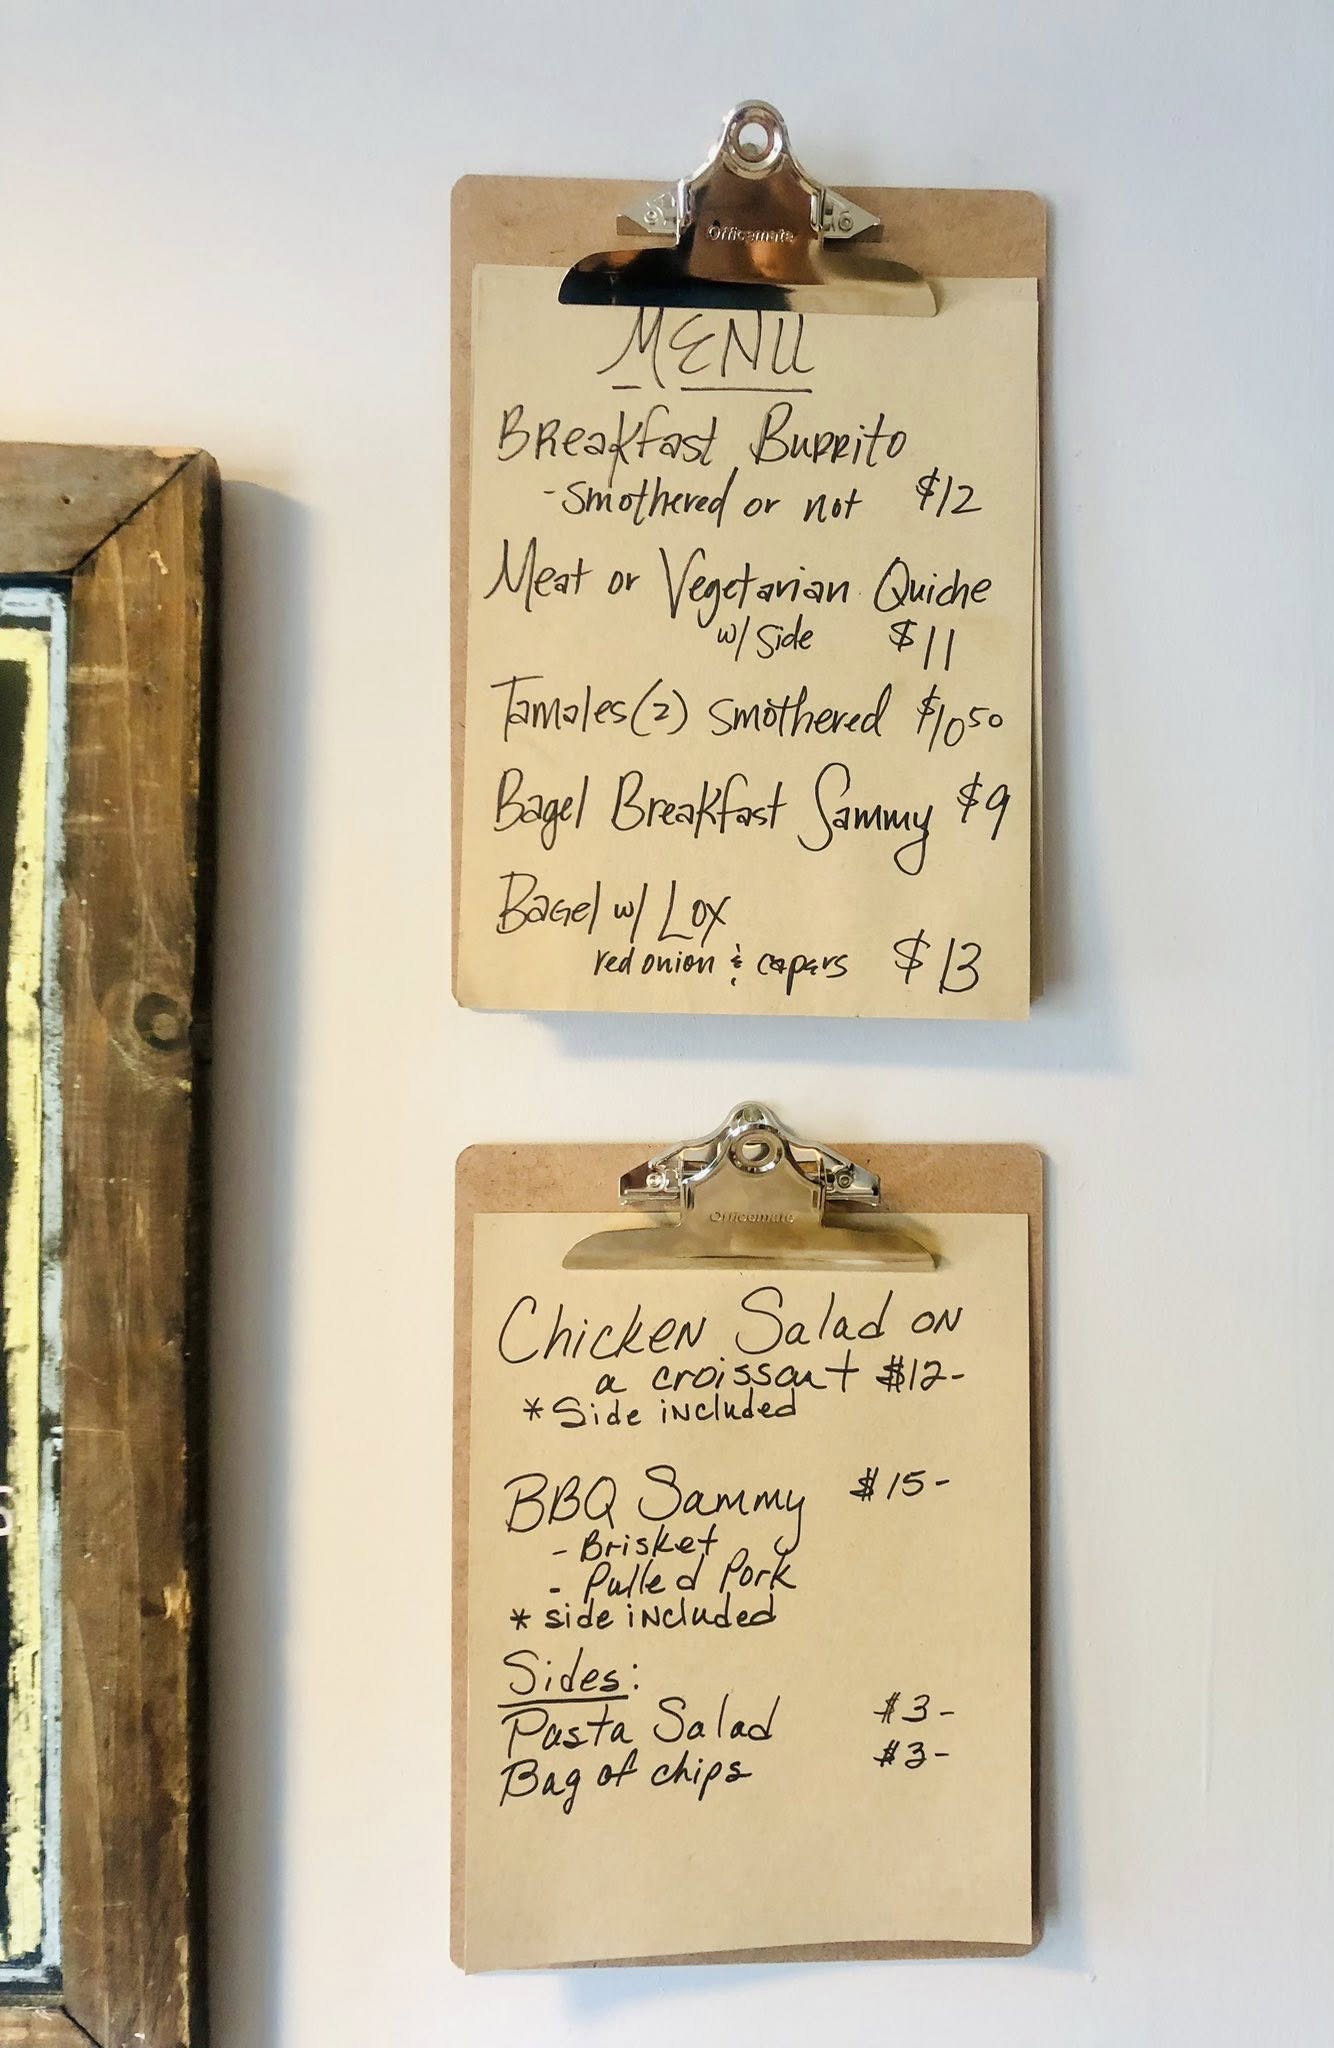 Officemate
MENU
Breakfast Burrito
- Smothered or not $12
Meat or Vegetarian Quiche
w/ side $11
Tamales (2) smothered $10.50
Bagel Breakfast Sammy $9
Bagel w/ Lox
red onion & capers $13
Officemate
Chicken Salad on
a croissant $12-
* Side included
BBQ Sammy $15-
- Brisket
- Pulled Pork
* side included
Sides:
Pasta Salad $3-
Bag of chips $3-